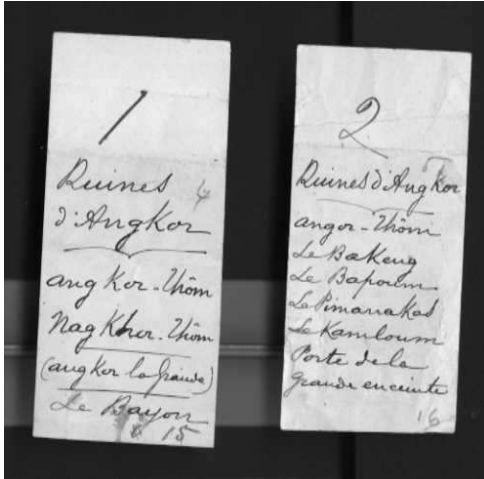 1
Ruines 4
d'Angkor
angkor-Thôm
Nagkhor-Thôm
(angkor la grande)
Le Bayon
15
2
Ruines d'Angkor
angor-Thôm
Le Bakeng
Le Bapoum
Le Pimanakas
Le Kamloum
Porte de la
grande enceinte
16